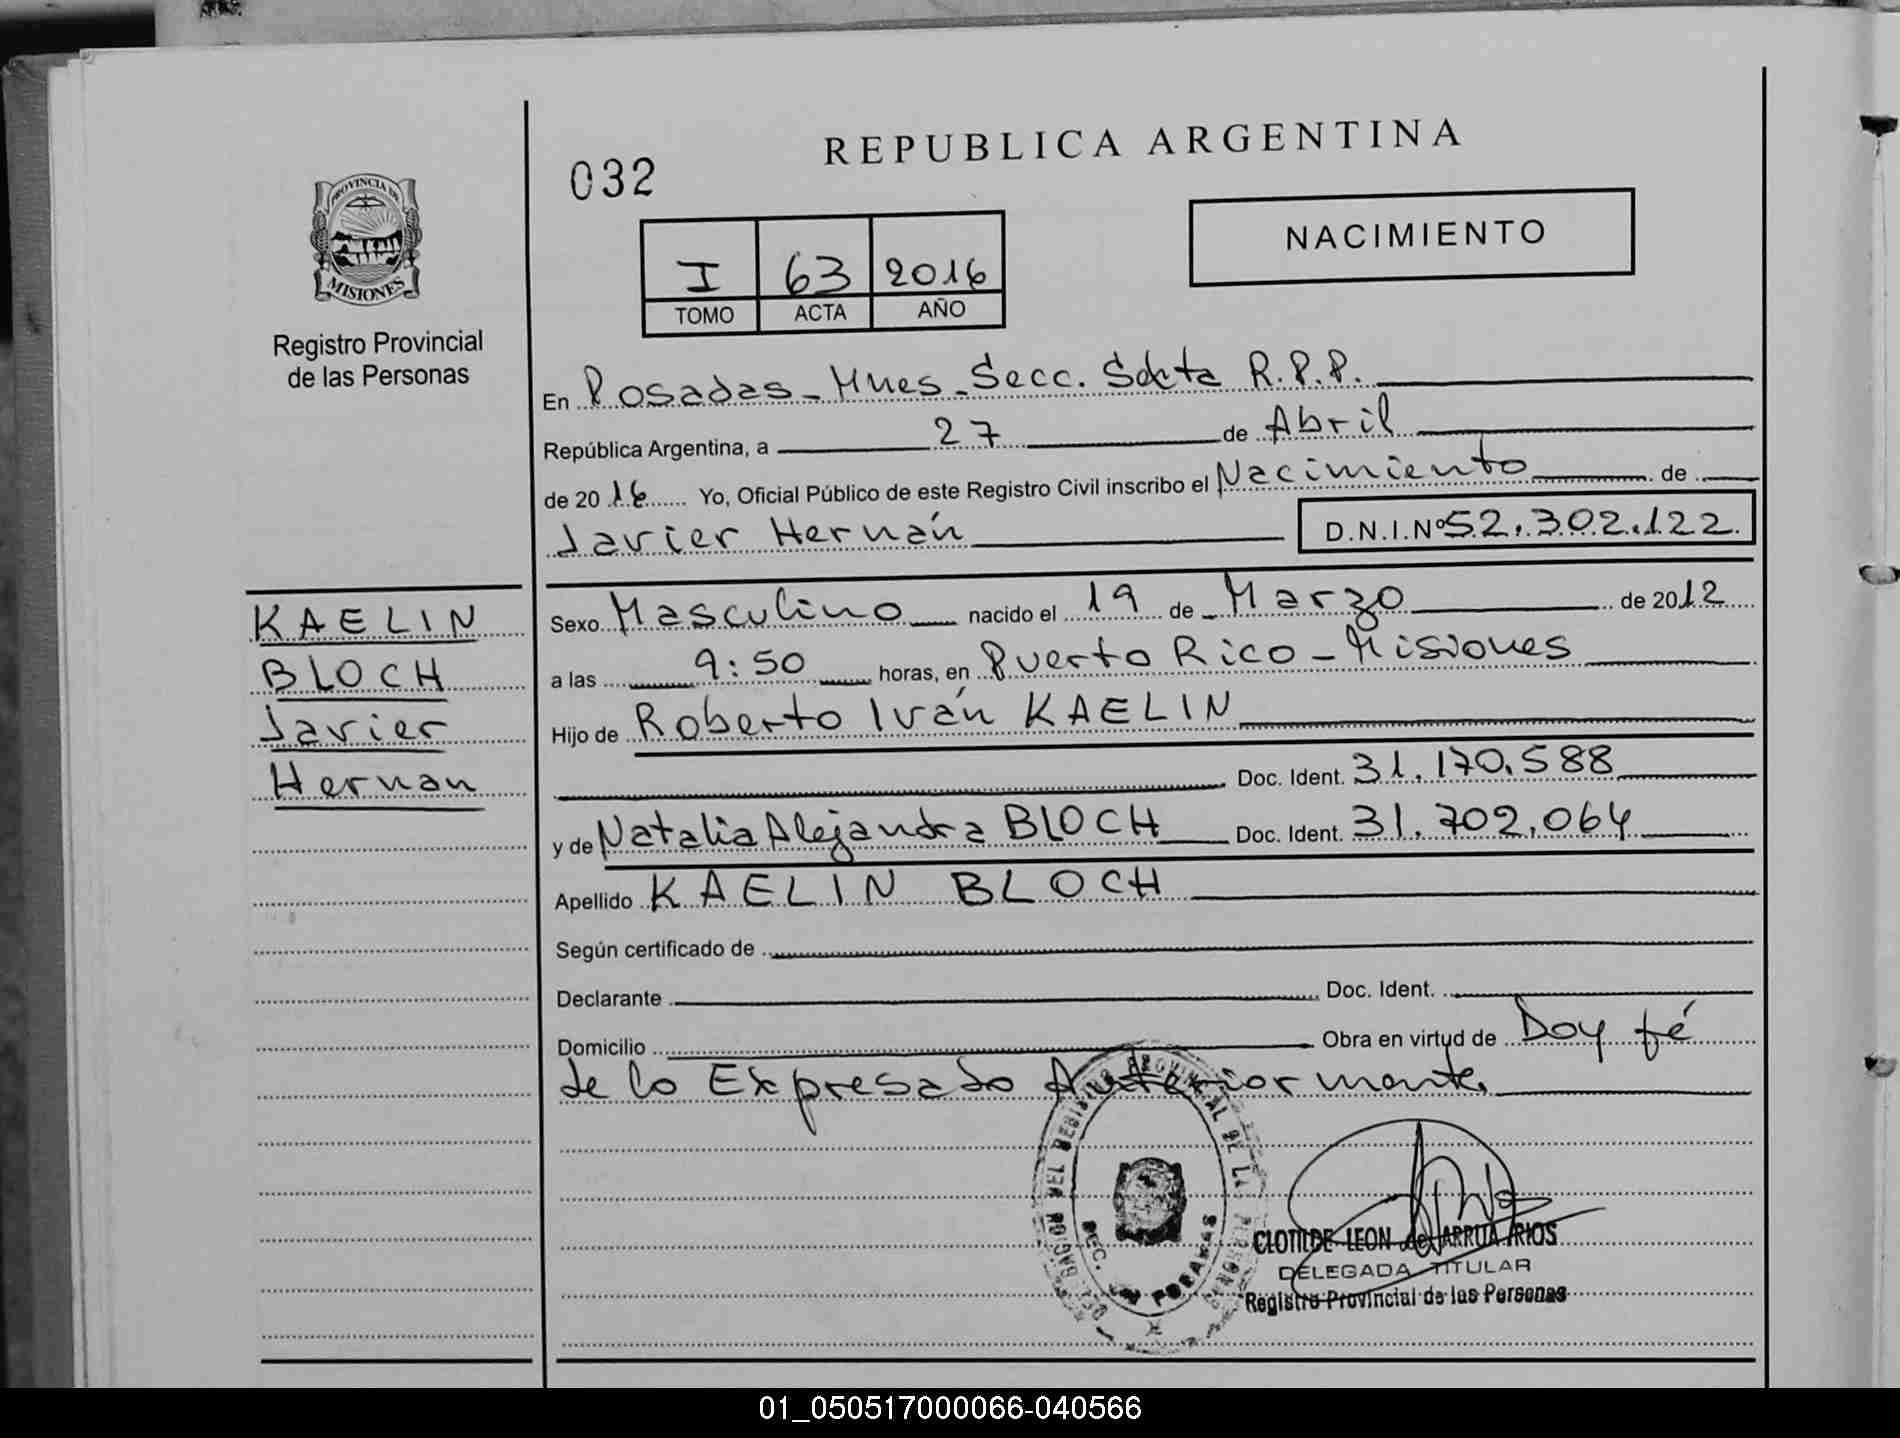 PROVINCIA DE
MISIONES
Registro Provincial
de las Personas
KAELIN
BLOCH
Javier
Hernan
032
REPUBLICA ARGENTINA
I 63 2016
TOMO ACTA AÑO
NACIMIENTO
En Posadas - Mnes - Secc. Sexta R.P.P.
República Argentina, a 27 de Abril
de 2016 Yo, Oficial Público de este Registro Civil inscribo el Nacimiento de
Javier Hernán D.N.I.Nº 52.302.122
Sexo Masculino nacido el 19 de Marzo de 2012
a las 9:50 horas, en Puerto Rico - Misiones
Hijo de Roberto Iván KAELIN
Doc. Ident. 31.170.588
y de Natalia Alejandra BLOCH Doc. Ident. 31.702.064
Apellido KAELIN BLOCH
Según certificado de
Declarante Doc. Ident.
Domicilio Obra en virtud de Doy fé
de lo Expresado Anteriormente.
DELEGACION DEL REGISTRO PROVINCIAL DE LAS PERSONAS
SEC. POSADAS
CLOTILDE LEON de ARRUA RIOS
DELEGADA TITULAR
Registro Provincial de las Personas
01_050517000066-040566